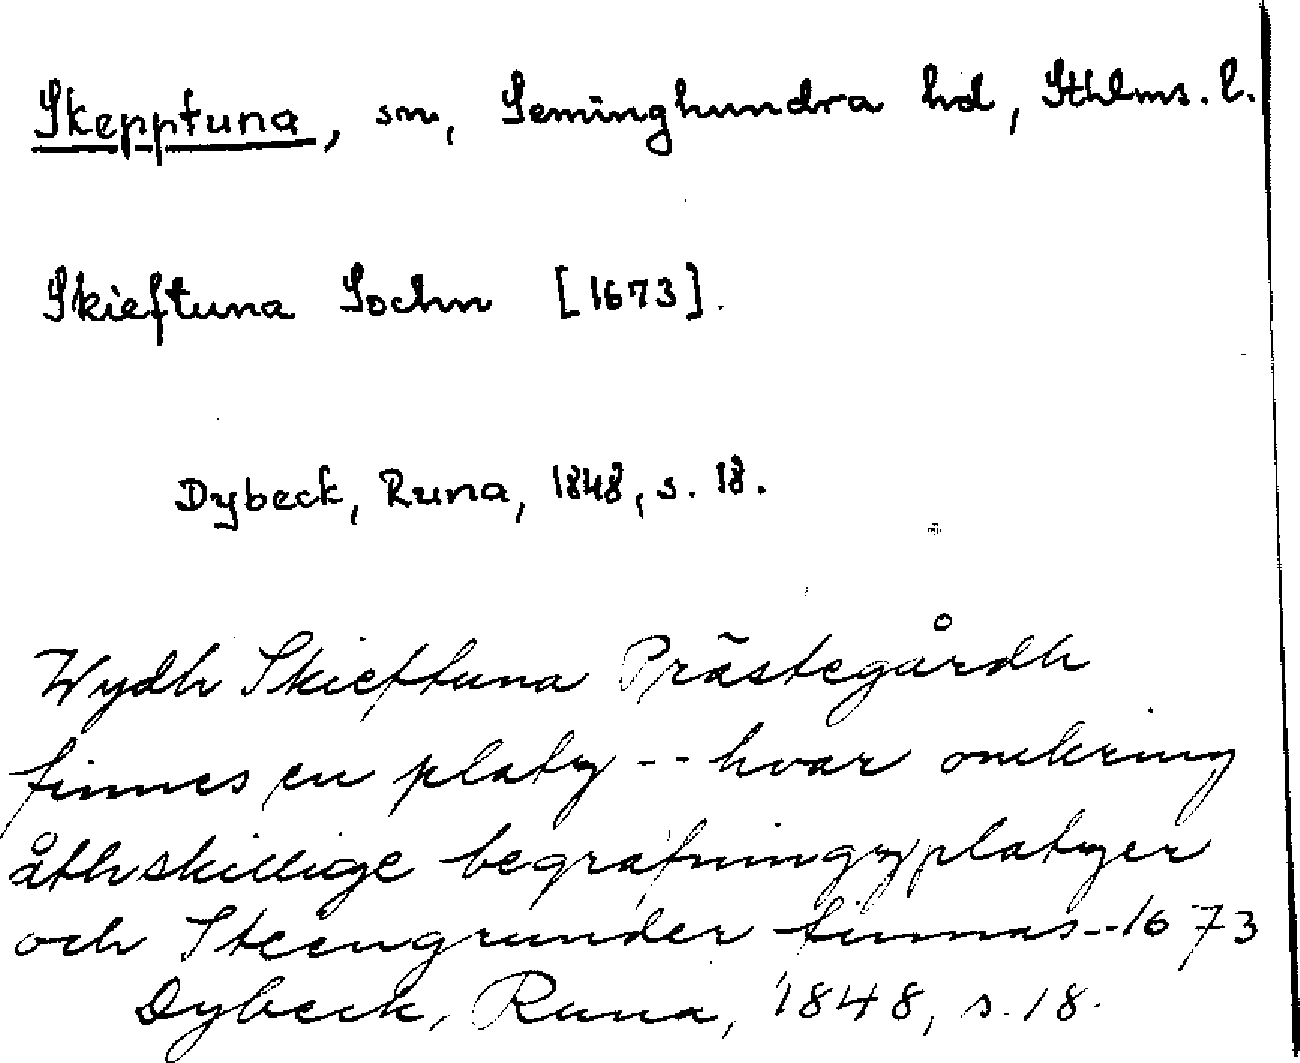 Skepptuna, sn, Seminghundra hd, Sthlms. l.
Skieftuna Sochn [1673].
Dybeck, Runa, 1848, s. 18.
Wydh Skieftuna Prästegårdh
finnes en platz -- hvar omkring
åthskillige begrafningzplatzer
och Steengrunder finnas -- 1673
Dybeck, Runa, 1848, s. 18.